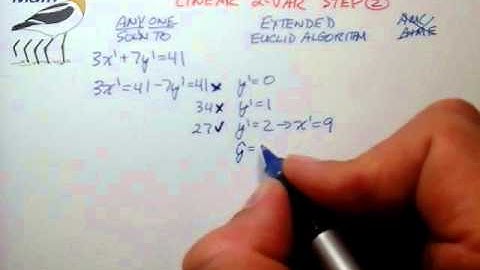 Math
LINEAR 2-VAR STEP (2)
ANY ONE SOLN TO
EXTENDED EUCLID ALGORITHM
AMC/AIME
3x'+7y'=41
3x'=41-7y'=41 x y'=0
34 x y'=1
27 ✓ y'=2→x'=9
y=